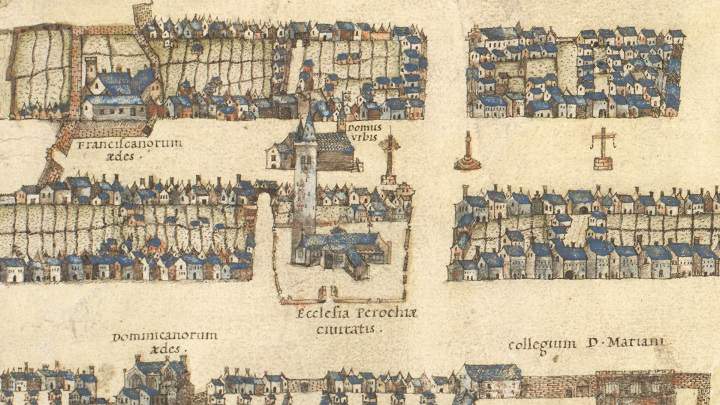 Domus
vrbis
Franciscanorum
ædes.
Ecclesia Perochiæ
ciuitatis.
Dominicanorum
ædes.
Collegium D. Mariani